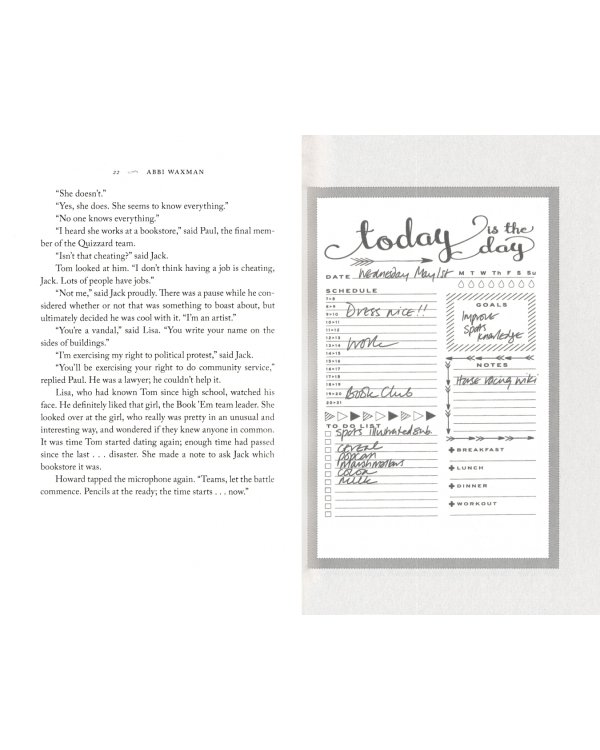 22 ABBI WAXMAN
"She doesn't."
"Yes, she does. She seems to know everything."
"No one knows everything."
"I heard she works at a bookstore," said Paul, the final mem-
ber of the Quizzard team.
"Isn't that cheating?" said Jack.
Tom looked at him. "I don't think having a job is cheating,
Jack. Lots of people have jobs."
"Not me," said Jack proudly. There was a pause while he con-
sidered whether or not that was something to boast about, but
ultimately decided he was cool with it. "I'm an artist."
"You're a vandal," said Lisa. "You write your name on the
sides of buildings."
"I'm exercising my right to political protest," said Jack.
"You'll be exercising your right to do community service,"
replied Paul. He was a lawyer; he couldn't help it.
Lisa, who had known Tom since high school, watched his
face. He definitely liked that girl, the Book 'Em team leader. She
looked over at the girl, who really was pretty in an unusual and
interesting way, and wondered if they knew anyone in common.
It was time Tom started dating again; enough time had passed
since the last . . . disaster. She made a note to ask Jack which
bookstore it was.
Howard tapped the microphone again. "Teams, let the battle
commence. Pencils at the ready; the time starts . . . now."
today is the day
DATE Wednesday May 1st M T W Th F S Su
SCHEDULE
7>8
8>9
9>10 Dress nice!!
10>11
11>12
12>13
13>14 Work
14>15
15>16
16>17
17>18
18>19
19>20 Book Club
20>21
TO DO LIST
Sports illustrated sub.
cereal
popcorn
marshmallows
milk
GOALS
Improve
Sports
knowledge
NOTES
Horse racing wiki
BREAKFAST
LUNCH
DINNER
WORKOUT